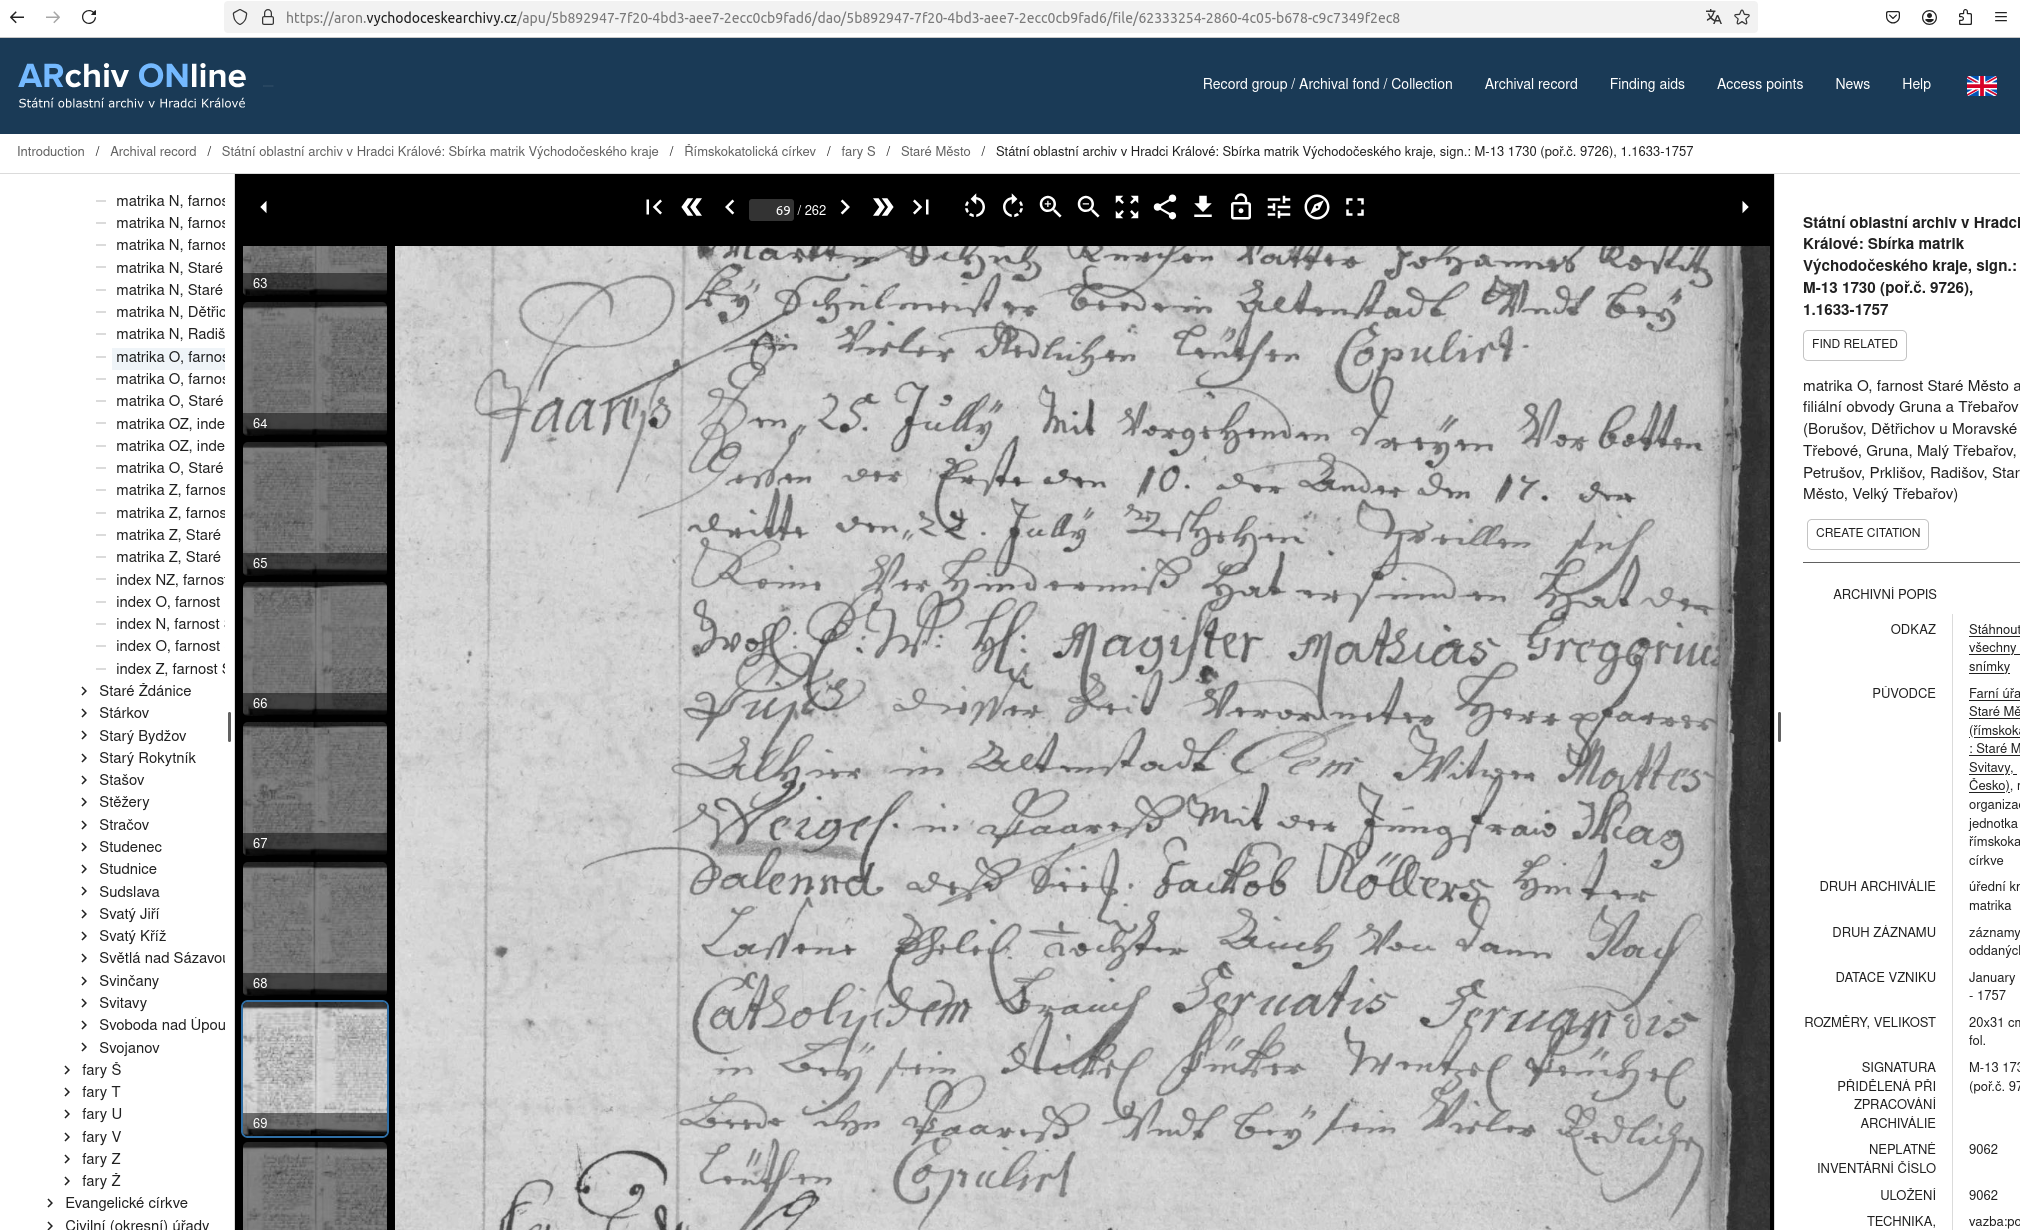 https://aron.vychodoceskearchivy.cz/apu/5b892947-7f20-4bd3-aee7-2ecc0cb9fad6/dao/5b892947-7f20-4bd3-aee7-2ecc0cb9fad6/file/62333254-2860-4c05-b678-c9c7349f2ec8
ARchiv ONline
Státní oblastní archiv v Hradci Králové
Record group / Archival fond / Collection
Archival record
Finding aids
Access points
News
Help
Introduction / Archival record / Státní oblastní archiv v Hradci Králové: Sbírka matrik Východočeského kraje / Římskokatolická církev / fary S / Staré Město / Státní oblastní archiv v Hradci Králové: Sbírka matrik Východočeského kraje, sign.: M-13 1730 (poř.č. 9726), 1.1633-1757
matrika N, farnos
matrika N, farnos
matrika N, farnos
matrika N, Staré
matrika N, Staré
matrika N, Dětřic
matrika N, Radiš
matrika O, farnos
matrika O, farnos
matrika O, Staré
matrika OZ, inde
matrika OZ, inde
matrika O, Staré
matrika Z, farnos
matrika Z, farnos
matrika Z, Staré
matrika Z, Staré
index NZ, farnos
index O, farnost
index N, farnost
index O, farnost
index Z, farnost S
Staré Ždánice
Stárkov
Starý Bydžov
Starý Rokytník
Stašov
Stěžery
Stračov
Studenec
Studnice
Sudslava
Svatý Jiří
Svatý Kříž
Světlá nad Sázavou
Svinčany
Svitavy
Svoboda nad Úpou
Svojanov
fary Š
fary T
fary U
fary V
fary Z
fary Ž
Evangelické církve
Civilní (okresní) úřady
69 / 262
63
64
65
66
67
68
69
Schulmeister in Altenstadt Undt bey
Vieler Redlichen Leüthen Copulirt.
Den 25. Jully Mit Vorgehenden dreyen Vorbotten
dessen der Erste den 10. der Ander den 17. der
dritte den 22. Jully Geschehen
Keine Verhindernuß hat erfunden hat der
Wohl: E: W: H: Magister Mathias Gregorius
dieser Zeit Verordneter Herr pfarrer
Alhier in Altenstadt Den Witwer Mattes
Weigel in Paareß Mit der Jungfraw Mag
dalenna deß Seel. Jackob Röllers hinter
Lassene Ehelich Tochter Auch Von dann Nach
Catholischem brauch Servatis Servandis
in bey sein Wentzel
Beede Paareß Undt bey sein Vieler Redlichen
Leüthen Copulirt
Státní oblastní archiv v Hradci
Králové: Sbírka matrik
Východočeského kraje, sign.:
M-13 1730 (poř.č. 9726),
1.1633-1757
FIND RELATED
matrika O, farnost Staré Město a
filiální obvody Gruna a Třebařov
(Borušov, Dětřichov u Moravské
Třebové, Gruna, Malý Třebařov,
Petrušov, Prklišov, Radišov, Star
Město, Velký Třebařov)
CREATE CITATION
ARCHIVNÍ POPIS
ODKAZ Stáhnout
všechny
snímky
PŮVODCE Farní úřa
Staré Mě
(římskoka
: Staré M
Svitavy,
Česko), r
organizac
jednotka
římskoka
církve
DRUH ARCHIVÁLIE úřední kn
matrika
DRUH ZÁZNAMU záznamy
oddaných
DATACE VZNIKU January
- 1757
ROZMĚRY, VELIKOST 20x31 cm
fol.
SIGNATURA M-13 173
PŘIDĚLENÁ PŘI (poř.č. 97
ZPRACOVÁNÍ
ARCHIVÁLIE
NEPLATNÉ 9062
INVENTÁRNÍ ČÍSLO
ULOŽENÍ 9062
TECHNIKA, vazba:po